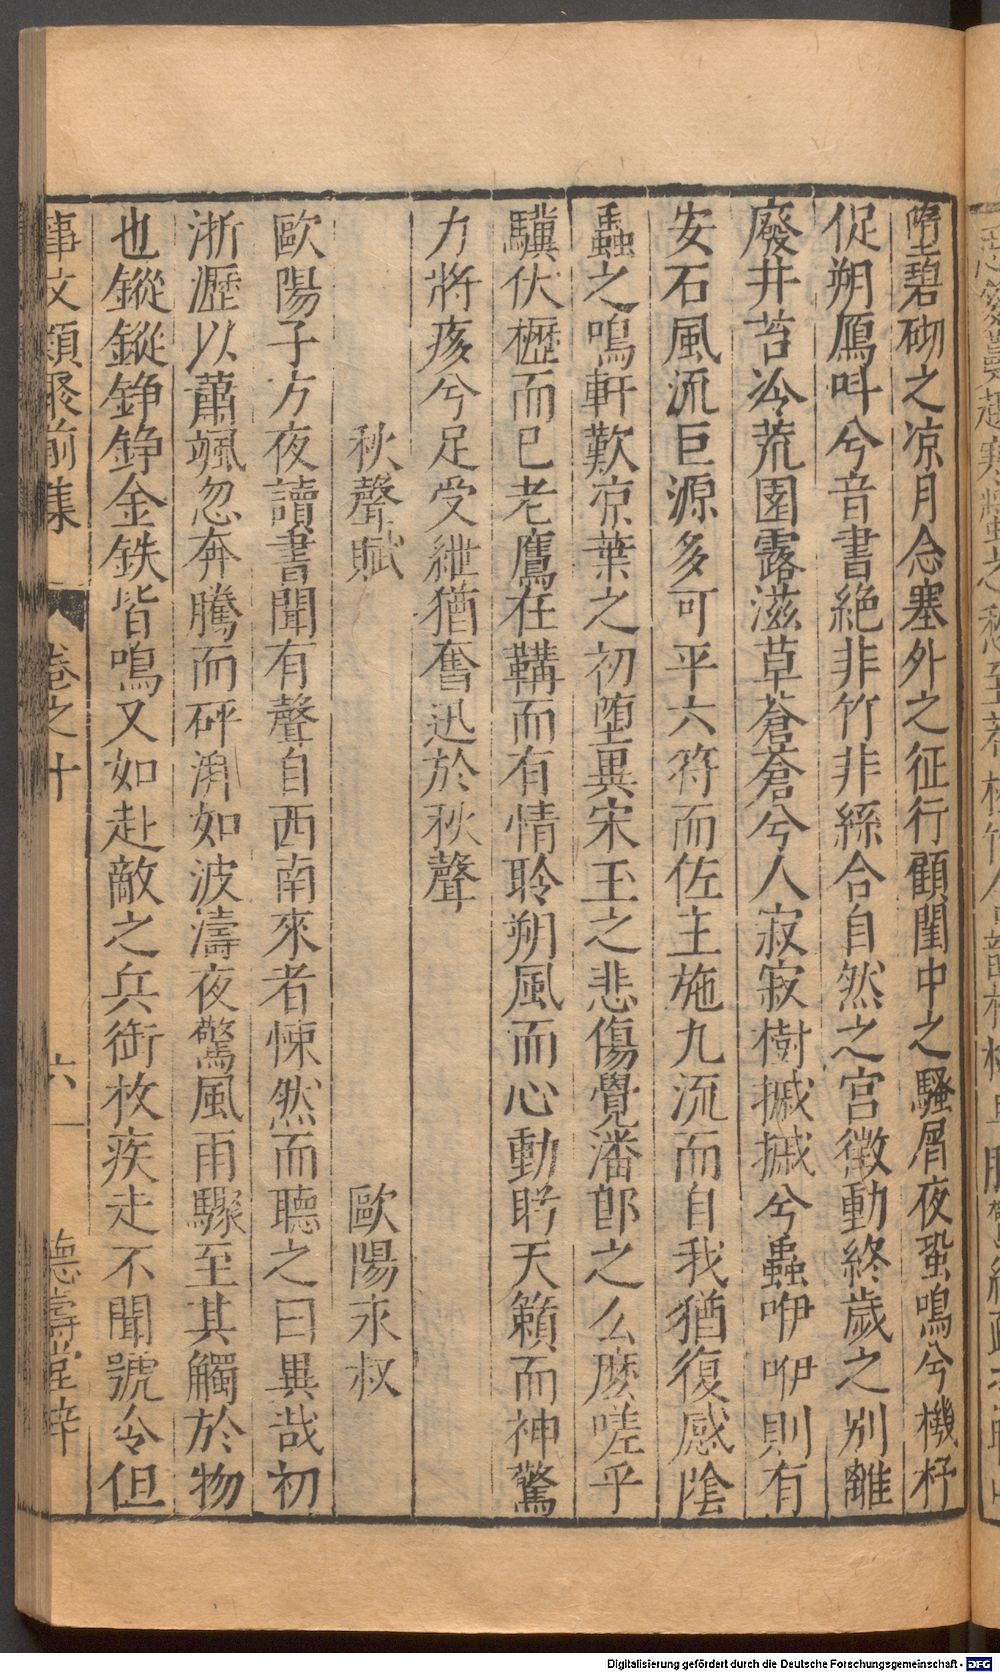 墮碧砌之凉月念塞外之征行顧閨中之騷屑夜蛩鳴兮機杼
促朔鴈叫兮音書絶非竹非絲合自然之宫徵動終歲之别離
廢井苔冷荒園露滋草蒼蒼兮人寂寂樹摵摵兮蟲咿咿則有
安石風流巨源多可平六符而佐主施九流而自我猶復感陰
蟲之鳴軒歎凉葉之初墮異宋玉之悲傷覺潘郎之么麽嗟乎
驥伏櫪而已老鷹在鞲而有情聆朔風而心動眄天籟而神驚
力將痎兮足受紲猶奮迅於秋聲
秋聲賦 歐陽永叔
歐陽子方夜讀書聞有聲自西南來者悚然而聽之曰異哉初
淅瀝以蕭颯忽奔騰而砰湃如波濤夜驚風雨驟至其觸於物
也鏦鏦錚錚金鉄皆鳴又如赴敵之兵銜枚疾走不聞號令但
事文類聚前集 卷之十 六 德壽堂梓
Digitalisierung gefördert durch die Deutsche Forschungsgemeinschaft - DFG